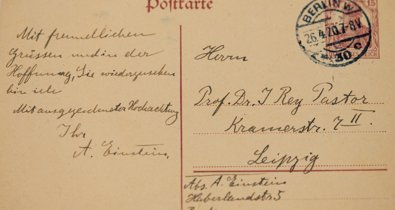 Postkarte
Mit freundlichen
Grüssen und in der
Hoffnung, Sie wiederzusehen
bin ich
Mit ausgezeichneter Hochachtung
Ihr
A. Einstein.
BERLIN W
26.4.20.7-8V.
30 c
15
Herrn
Prof. Dr. J Rey Pastor
Kramerstr. 7 II.
Leipzig
Abs. A. Einstein
Haberlandstr 5